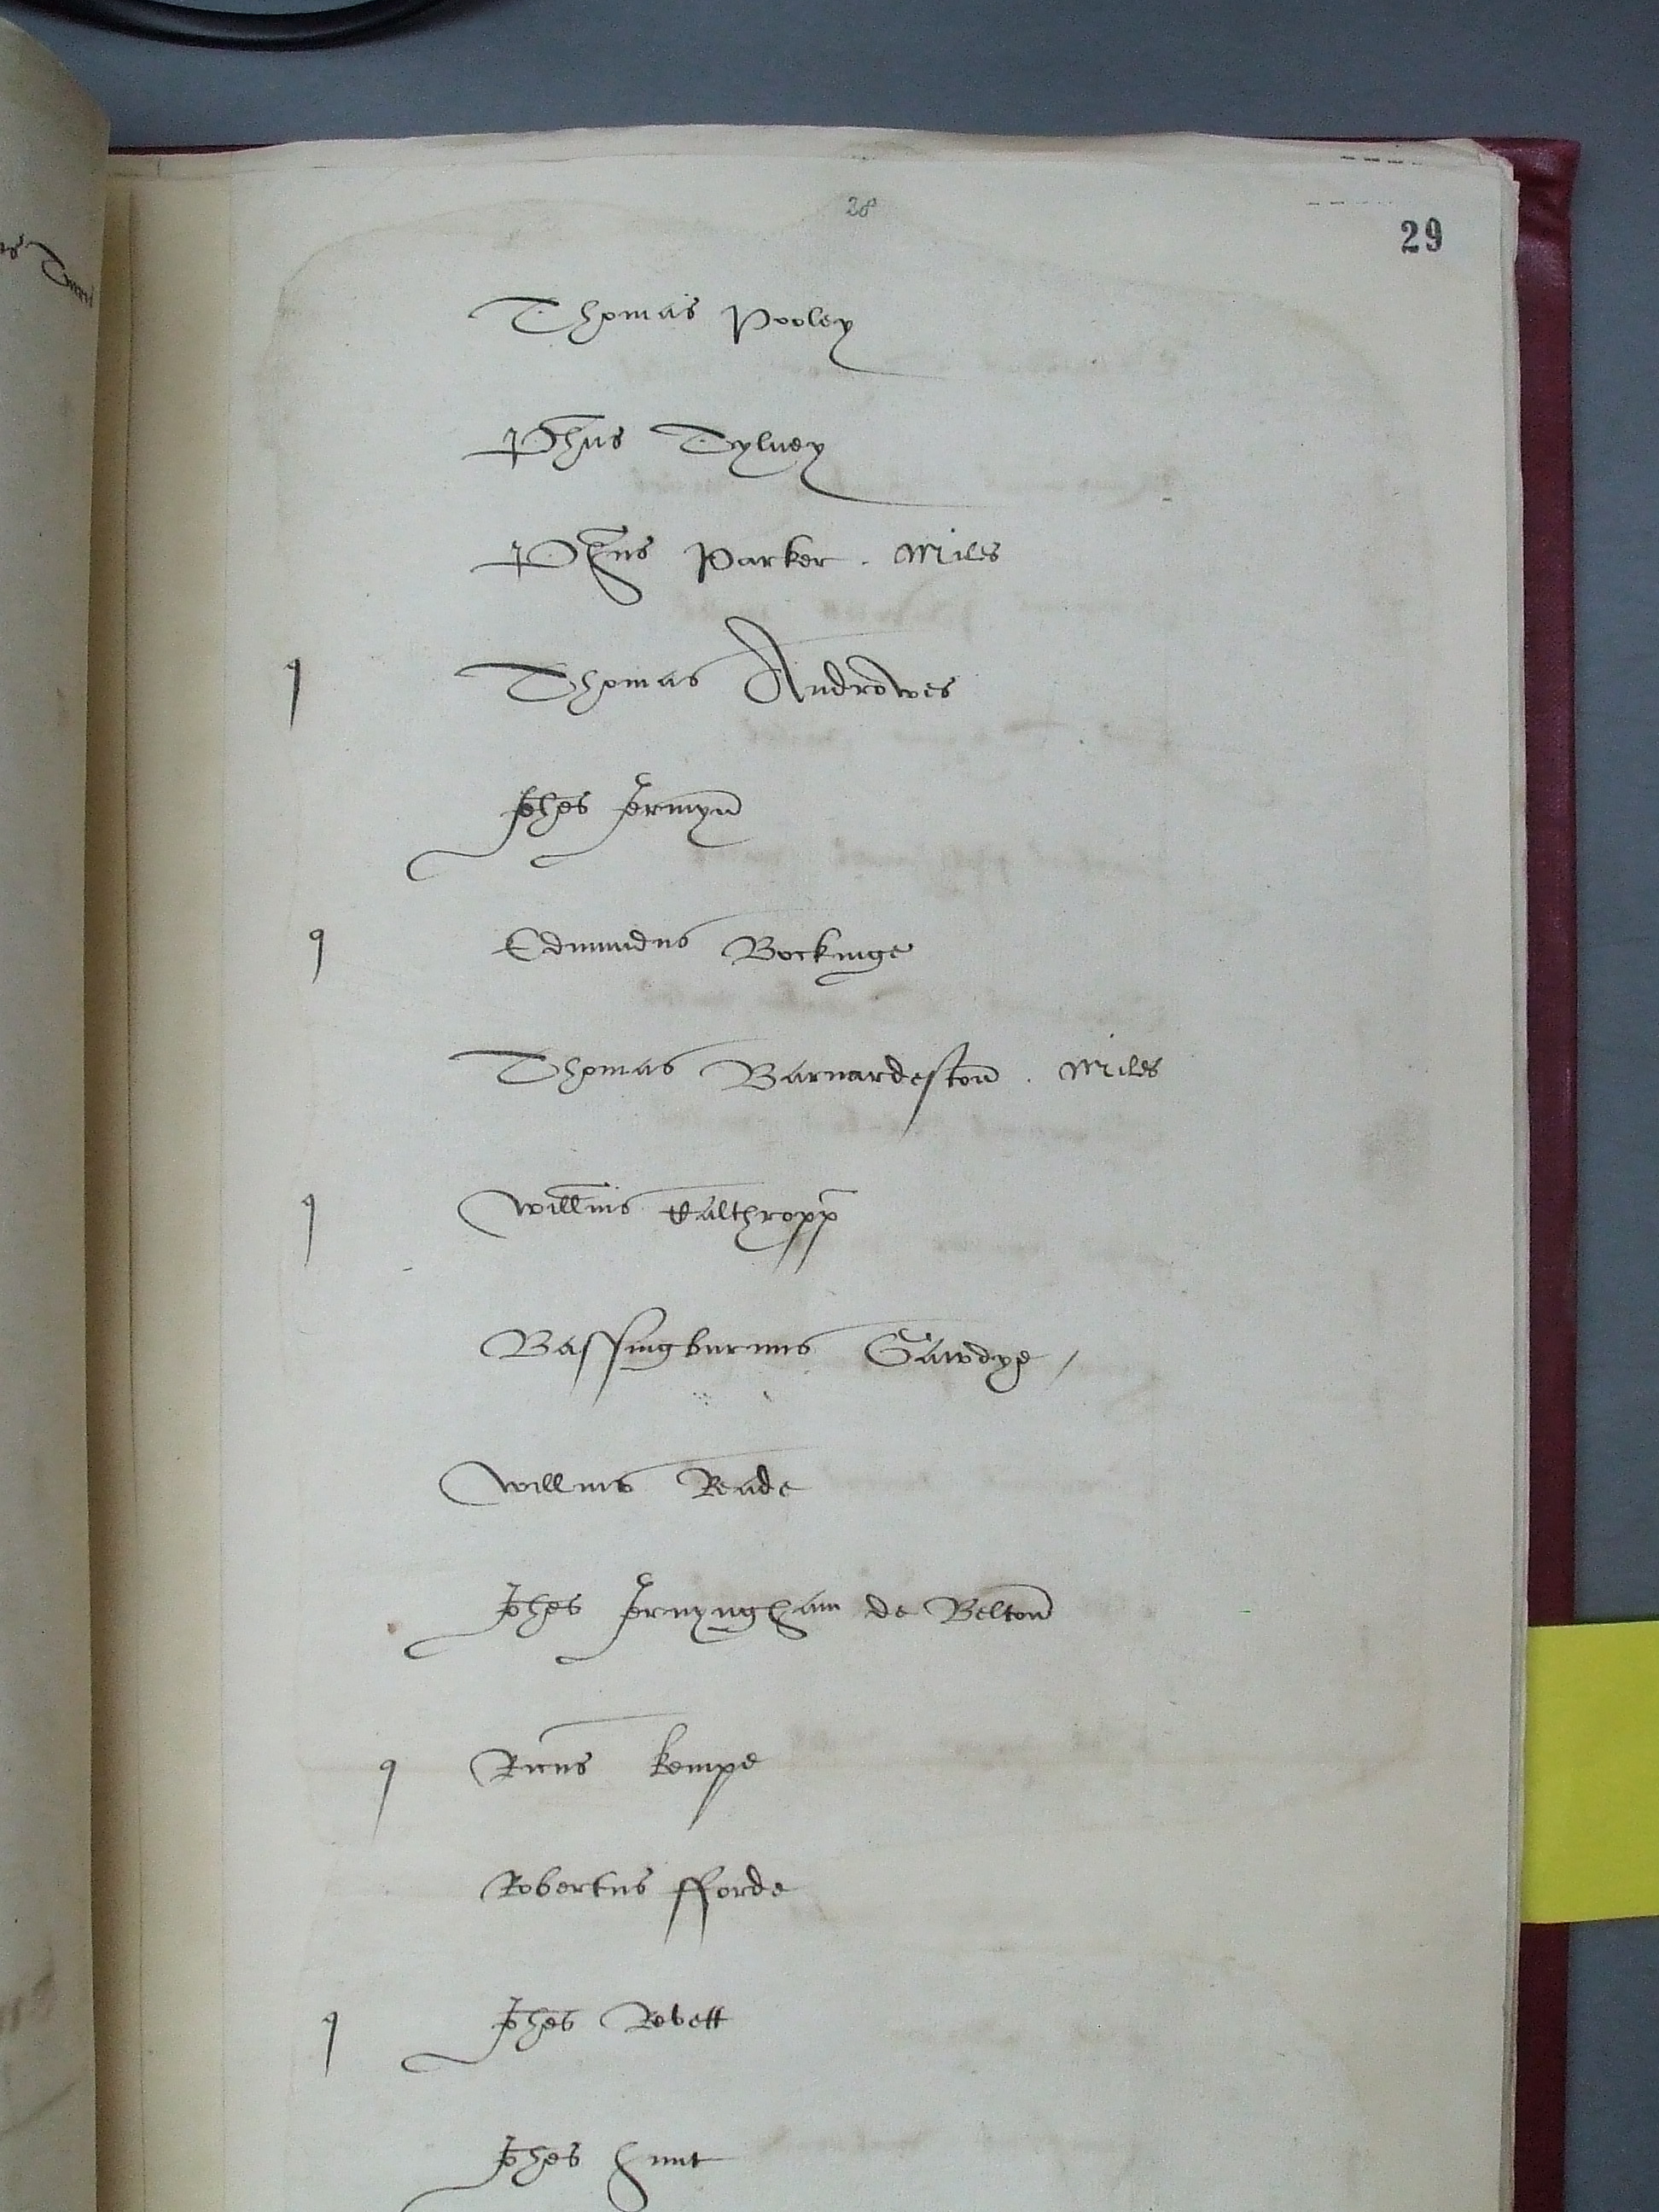 28
29
Thomas Pooley
Phus Tylney
Phus Parker . Miles
q Thomas Androwes
Johes Jermyn
q Edmundus Bockinge
Thomas Barnardeston . Miles
q Willms Calthropp
Bassingburnus Gawdye /
Willms Reade
Johes Jernyngham de Belton
q Ricus Kempe
Robertus fforde
q Johes Revett
Johes Hunt